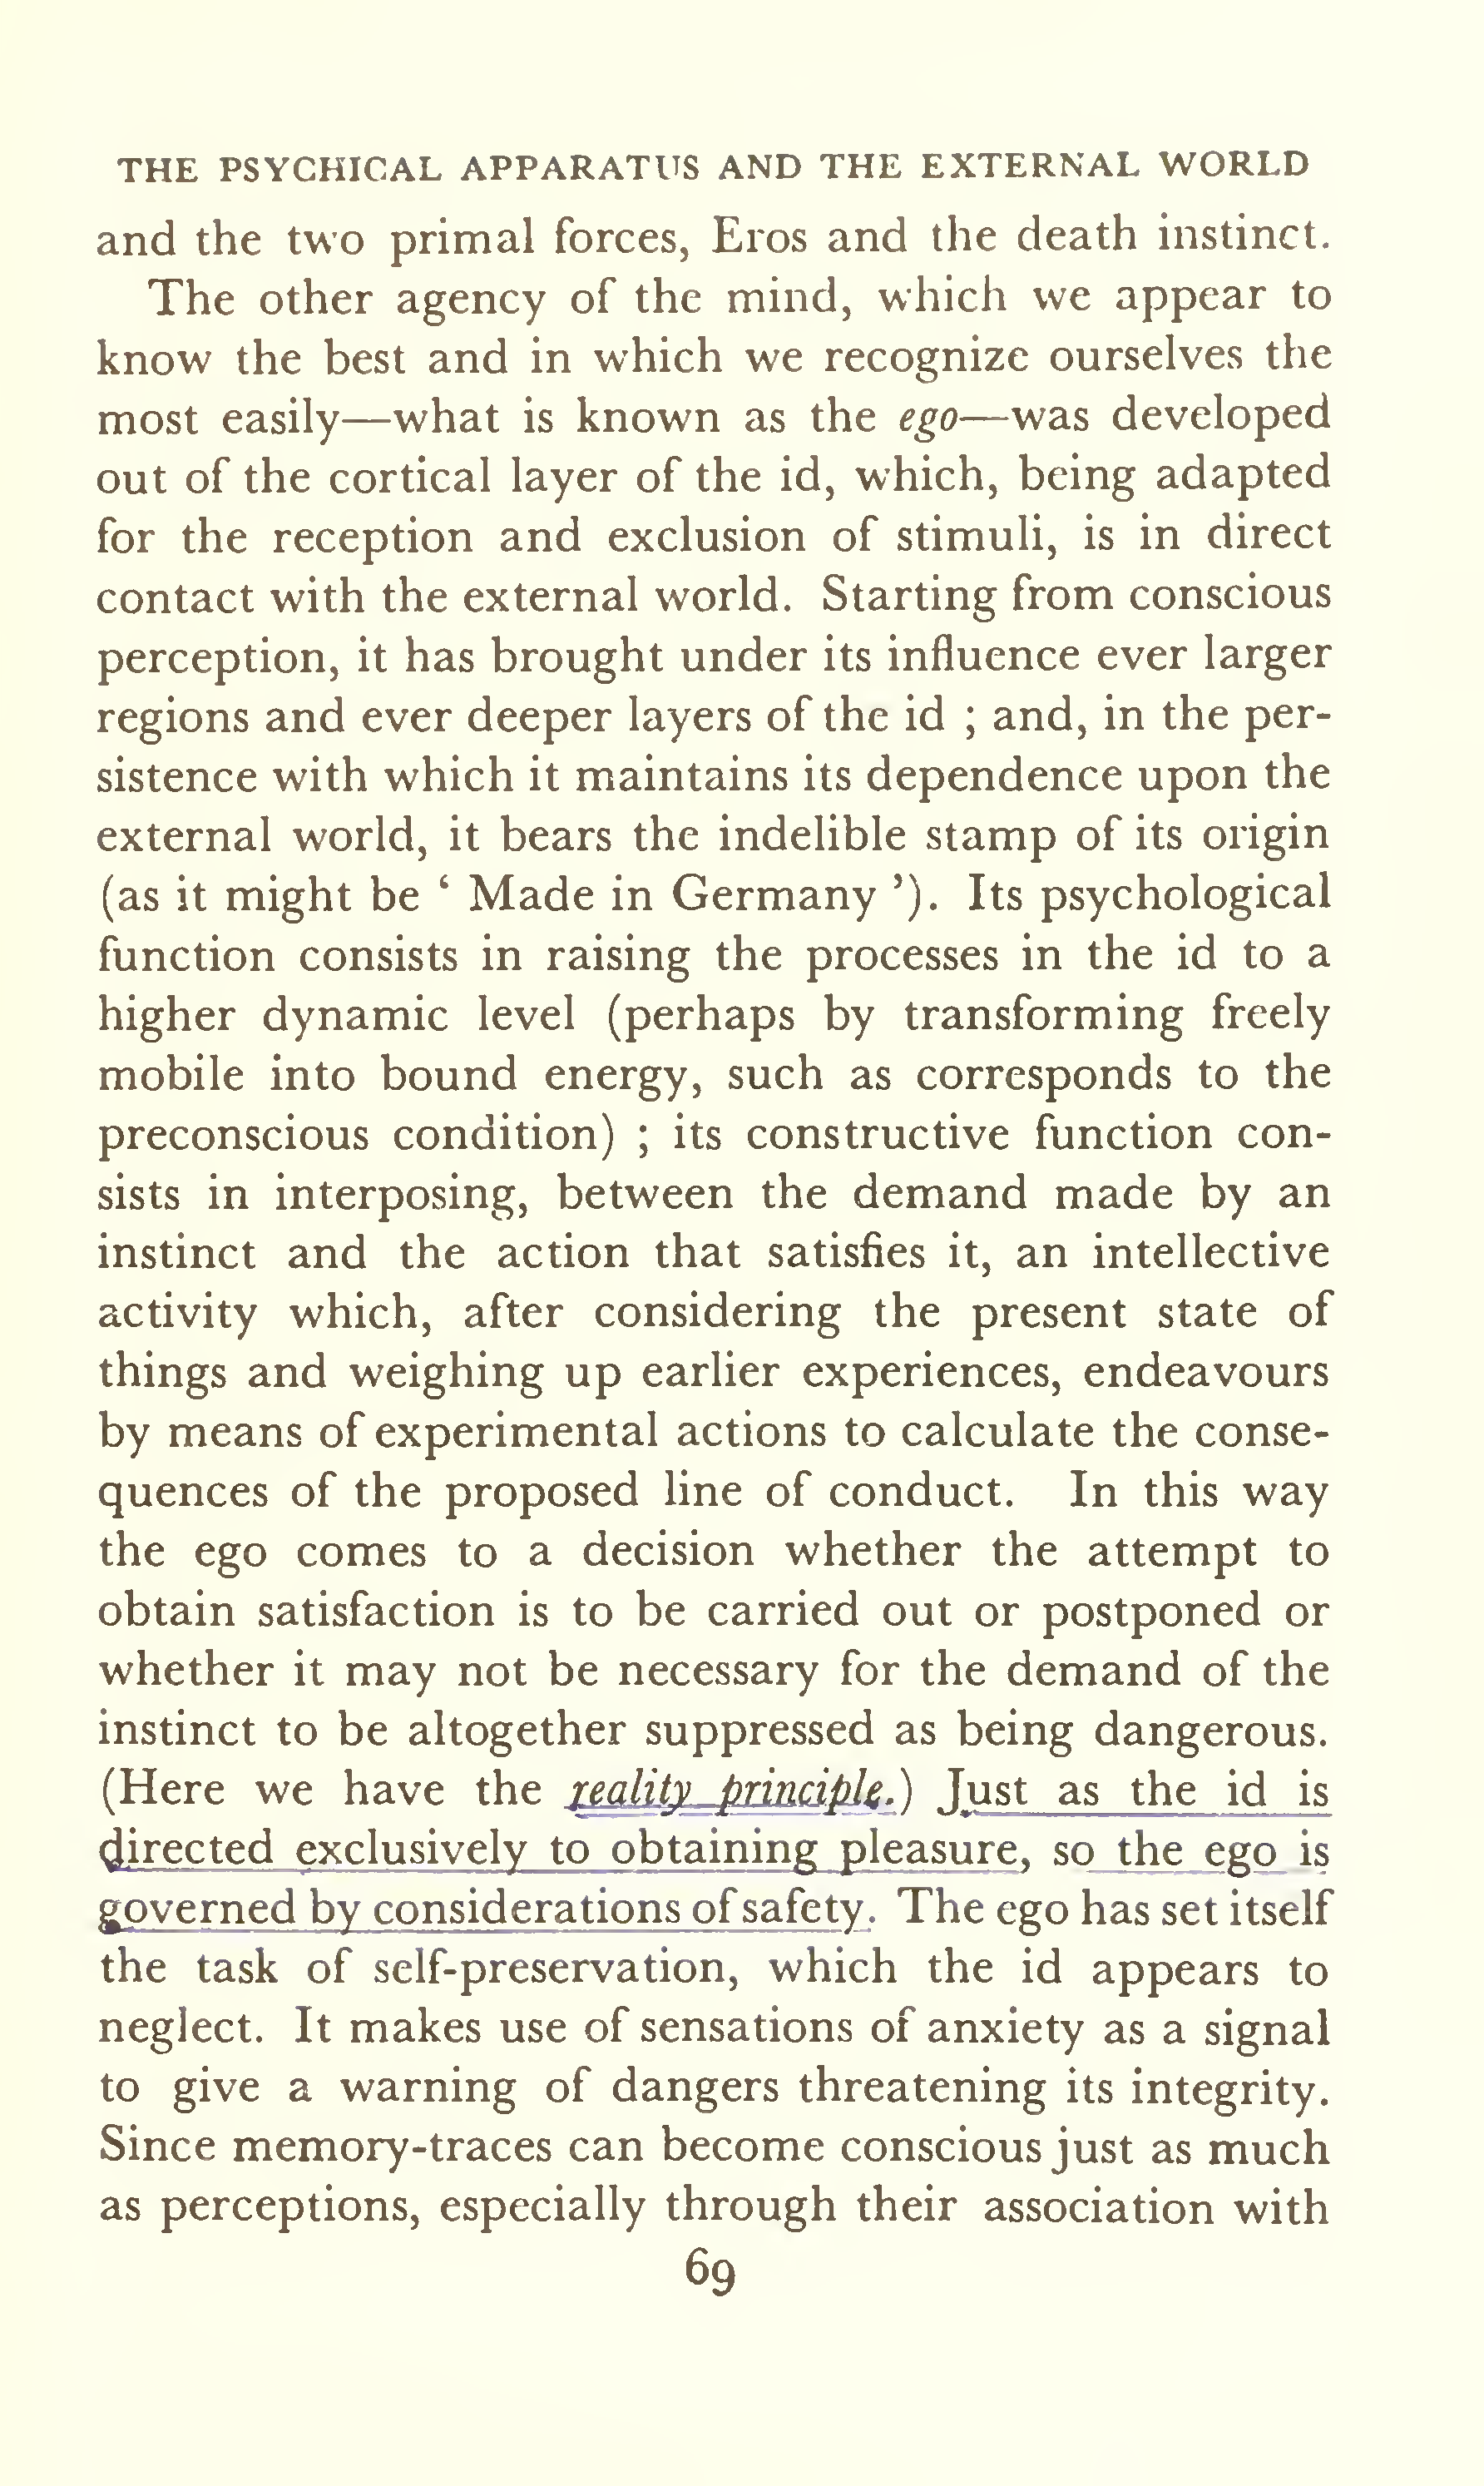 THE PSYCHICAL APPARATUS AND THE EXTERNAL WORLD
and the two primal forces, Eros and the death instinct.
The other agency of the mind, which we appear to
know the best and in which we recognize ourselves the
most easily—what is known as the ego—was developed
out of the cortical layer of the id, which, being adapted
for the reception and exclusion of stimuli, is in direct
contact with the external world. Starting from conscious
perception, it has brought under its influence ever larger
regions and ever deeper layers of the id ; and, in the per-
sistence with which it maintains its dependence upon the
external world, it bears the indelible stamp of its origin
(as it might be ‘ Made in Germany ’). Its psychological
function consists in raising the processes in the id to a
higher dynamic level (perhaps by transforming freely
mobile into bound energy, such as corresponds to the
preconscious condition) ; its constructive function con-
sists in interposing, between the demand made by an
instinct and the action that satisfies it, an intellective
activity which, after considering the present state of
things and weighing up earlier experiences, endeavours
by means of experimental actions to calculate the conse-
quences of the proposed line of conduct. In this way
the ego comes to a decision whether the attempt to
obtain satisfaction is to be carried out or postponed or
whether it may not be necessary for the demand of the
instinct to be altogether suppressed as being dangerous.
(Here we have the reality principle.) Just as the id is
directed exclusively to obtaining pleasure, so the ego is
governed by considerations of safety. The ego has set itself
the task of self-preservation, which the id appears to
neglect. It makes use of sensations of anxiety as a signal
to give a warning of dangers threatening its integrity.
Since memory-traces can become conscious just as much
as perceptions, especially through their association with
69